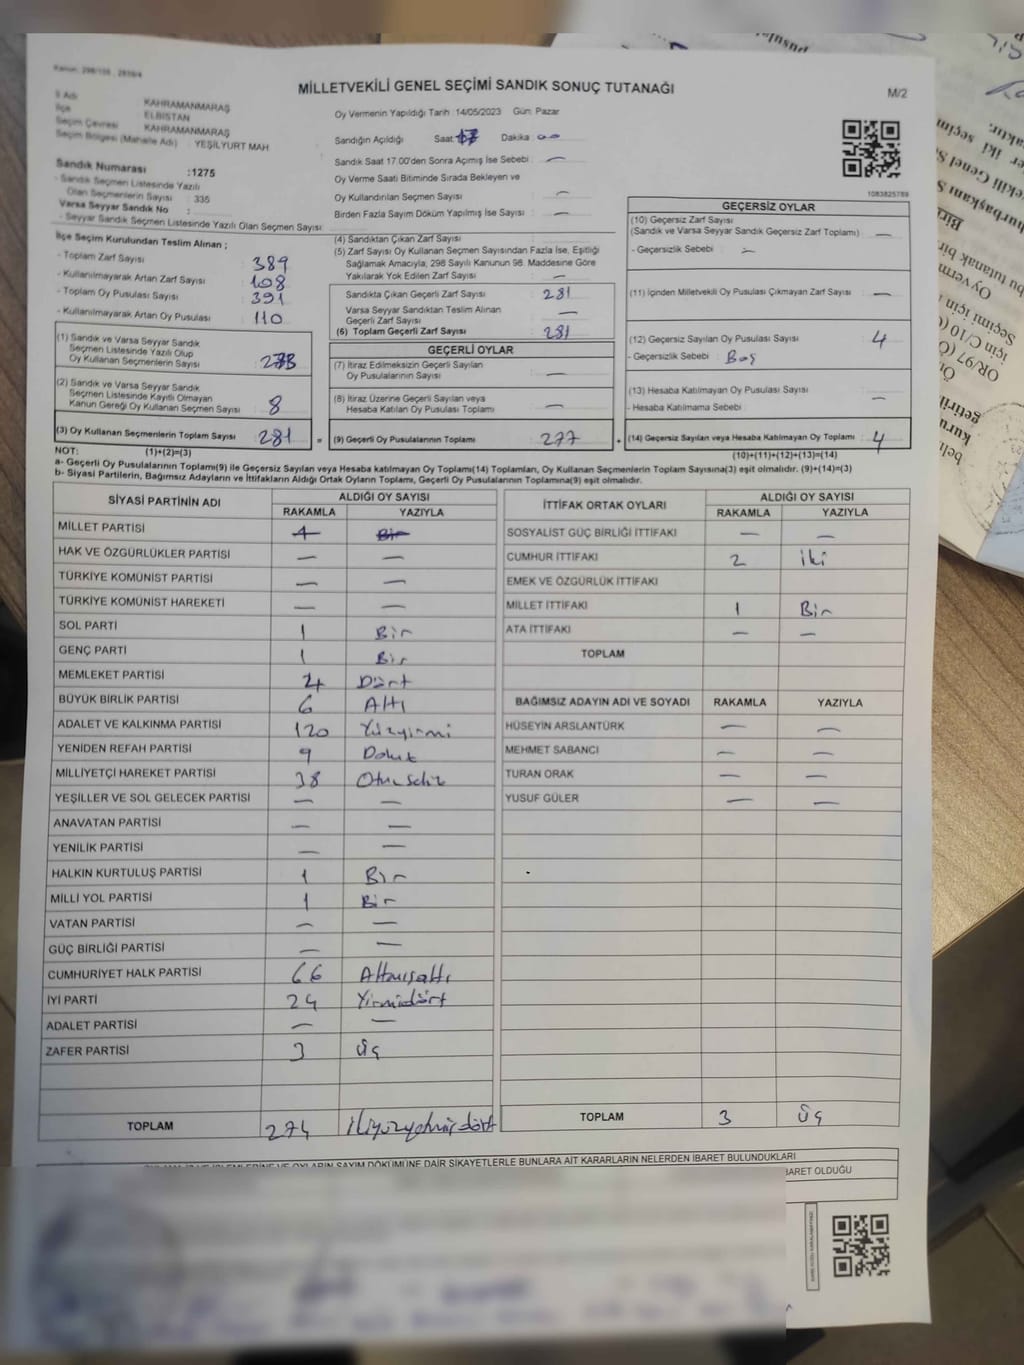 Kanun: 298/105 , 2839/4
MİLLETVEKİLİ GENEL SEÇİMİ SANDIK SONUÇ TUTANAĞI
M/2
İl Adı KAHRAMANMARAŞ
İlçe ELBİSTAN
Seçim Çevresi KAHRAMANMARAŞ
Seçim Bölgesi (Mahalle Adı) : YEŞİLYURT MAH
Sandık Numarası :1275
- Sandık Seçmen Listesinde Yazılı
Olan Seçmenlerin Sayısı : 335
Varsa Seyyar Sandık No :
- Seyyar Sandık Seçmen Listesinde Yazılı Olan Seçmen Sayısı :
Oy Vermenin Yapıldığı Tarih :14/05/2023 Gün: Pazar
Sandığın Açıldığı Saat 17 Dakika 00
Sandık Saat 17.00'den Sonra Açımış İse Sebebi : —
Oy Verme Saati Bitiminde Sırada Bekleyen ve
Oy Kullandırılan Seçmen Sayısı : —
Birden Fazla Sayım Döküm Yapılmış İse Sayısı : —
1083825789
İlçe Seçim Kurulundan Teslim Alınan ;
- Toplam Zarf Sayısı : 389
- Kullanılmayarak Artan Zarf Sayısı : 108
- Toplam Oy Pusulası Sayısı : 391
- Kullanılmayarak Artan Oy Pusulası : 110
(1) Sandık ve Varsa Seyyar Sandık
Seçmen Listesinde Yazılı Olup
Oy Kullanan Seçmenlerin Sayısı :
(2) Sandık ve Varsa Seyyar Sandık
Seçmen Listesinde Kayıtlı Olmayan
Kanun Gereği Oy Kullanan Seçmen Sayısı : 8
(3) Oy Kullanan Seçmenlerin Toplam Sayısı : 281
(4) Sandıktan Çıkan Zarf Sayısı :
(5) Zarf Sayısı Oy Kullanan Seçmen Sayısından Fazla İse, Eşitliği
Sağlamak Amacıyla, 298 Sayılı Kanunun 98. Maddesine Göre
Yakılarak Yok Edilen Zarf Sayısı : —
Sandıkta Çıkan Geçerli Zarf Sayısı : 281
Varsa Seyyar Sandıktan Teslim Alınan
Geçerli Zarf Sayısı : —
(6) Toplam Geçerli Zarf Sayısı : 281
GEÇERLİ OYLAR
(7) İtiraz Edilmeksizin Geçerli Sayılan
Oy Pusulalarının Sayısı : —
(8) İtiraz Üzerine Geçerli Sayılan veya
Hesaba Katılan Oy Pusulası Toplamı : —
= (9) Geçerli Oy Pusulalarının Toplamı : 277
GEÇERSİZ OYLAR
(10) Geçersiz Zarf Sayısı
(Sandık ve Varsa Seyyar Sandık Geçersiz Zarf Toplamı) : —
- Geçersizlik Sebebi : —
(11) İçinden Milletvekili Oy Pusulası Çıkmayan Zarf Sayısı : —
(12) Geçersiz Sayılan Oy Pusulası Sayısı : 4
- Geçersizlik Sebebi : Boş
(13) Hesaba Katılmayan Oy Pusulası Sayısı : —
- Hesaba Katılmama Sebebi :
+ (14) Geçersiz Sayılan veya Hesaba Katılmayan Oy Toplamı : 4
NOT: (1)+(2)=(3)
(10)+(11)+(12)+(13)=(14)
a- Geçerli Oy Pusulalarının Toplamı(9) ile Geçersiz Sayılan veya Hesaba katılmayan Oy Toplamı(14) Toplamları, Oy Kullanan Seçmenlerin Toplam Sayısına(3) eşit olmalıdır. (9)+(14)=(3)
b- Siyasi Partilerin, Bağımsız Adayların ve İttifakların Aldığı Ortak Oyların Toplamı, Geçerli Oy Pusulalarının Toplamına(9) eşit olmalıdır.
SİYASİ PARTİNİN ADI ALDIĞI OY SAYISI
RAKAMLA YAZIYLA
MİLLET PARTİSİ 1 Bir
HAK VE ÖZGÜRLÜKLER PARTİSİ — —
TÜRKİYE KOMÜNİST PARTİSİ — —
TÜRKİYE KOMÜNİST HAREKETİ — —
SOL PARTİ 1 Bir
GENÇ PARTİ 1 Bir
MEMLEKET PARTİSİ 4 Dört
BÜYÜK BİRLİK PARTİSİ 6 Altı
ADALET VE KALKINMA PARTİSİ 120 Yüzyirmi
YENİDEN REFAH PARTİSİ 9 Dokuz
MİLLİYETÇİ HAREKET PARTİSİ 38 Otuzsekiz
YEŞİLLER VE SOL GELECEK PARTİSİ — —
ANAVATAN PARTİSİ — —
YENİLİK PARTİSİ — —
HALKIN KURTULUŞ PARTİSİ 1 Bir
MİLLİ YOL PARTİSİ 1 Bir
VATAN PARTİSİ — —
GÜÇ BİRLİĞİ PARTİSİ — —
CUMHURİYET HALK PARTİSİ 66 Altmışaltı
İYİ PARTİ 24 Yirmidört
ADALET PARTİSİ — —
ZAFER PARTİSİ 3 üç
TOPLAM 274 ikiyüzyetmişdört
İTTİFAK ORTAK OYLARI ALDIĞI OY SAYISI
RAKAMLA YAZIYLA
SOSYALİST GÜÇ BİRLİĞİ İTTİFAKI — —
CUMHUR İTTİFAKI 2 iki
EMEK VE ÖZGÜRLÜK İTTİFAKI
MİLLET İTTİFAKI 1 Bir
ATA İTTİFAKI — —
TOPLAM
BAĞIMSIZ ADAYIN ADI VE SOYADI RAKAMLA YAZIYLA
HÜSEYİN ARSLANTÜRK — —
MEHMET SABANCI — —
TURAN ORAK — —
YUSUF GÜLER — —
TOPLAM 3 üç
OYLARIN SAYIM DÖKÜMÜNE DAİR ŞİKAYETLERLE BUNLARA AİT KARARLARIN NELERDEN İBARET BULUNDUKLARI
İBARET OLDUĞU